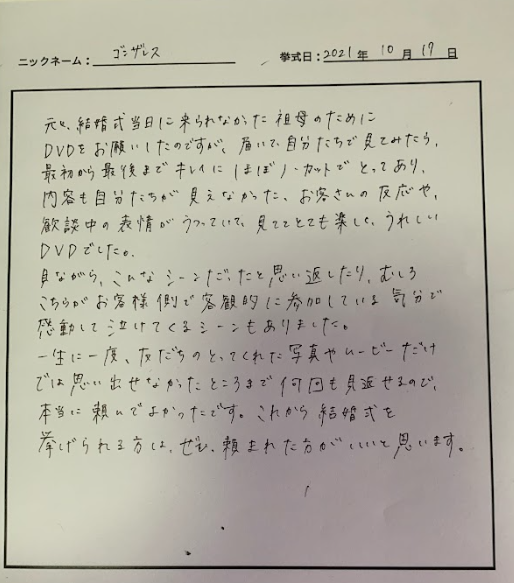 ニックネーム： ゴンザレス 挙式日：2021年 10月 17日
元々、結婚式当日に来られなかった祖母のために
DVDをお願いしたのですが、届いて、自分たちで見てみたら、
最初から最後までキレイにほぼノーカットでとってあり、
内容も自分たちが見えなかった、お客さんの反応や、
歓談中の表情がうつっていて、見ててとても楽しく、うれしい
DVDでした。
見ながら、こんなシーンだったと思い返したり、むしろ
こちらがお客様側で客観的に参加している気分で
感動して泣けてくるシーンもありました。
一生に一度、友だちのとってくれた写真やムービーだけ
では思い出せなかったところまで何回も見返せるので、
本当に頼んでよかったです。これから結婚式を
挙げられる方は、ぜひ、頼まれた方がいいと思います。